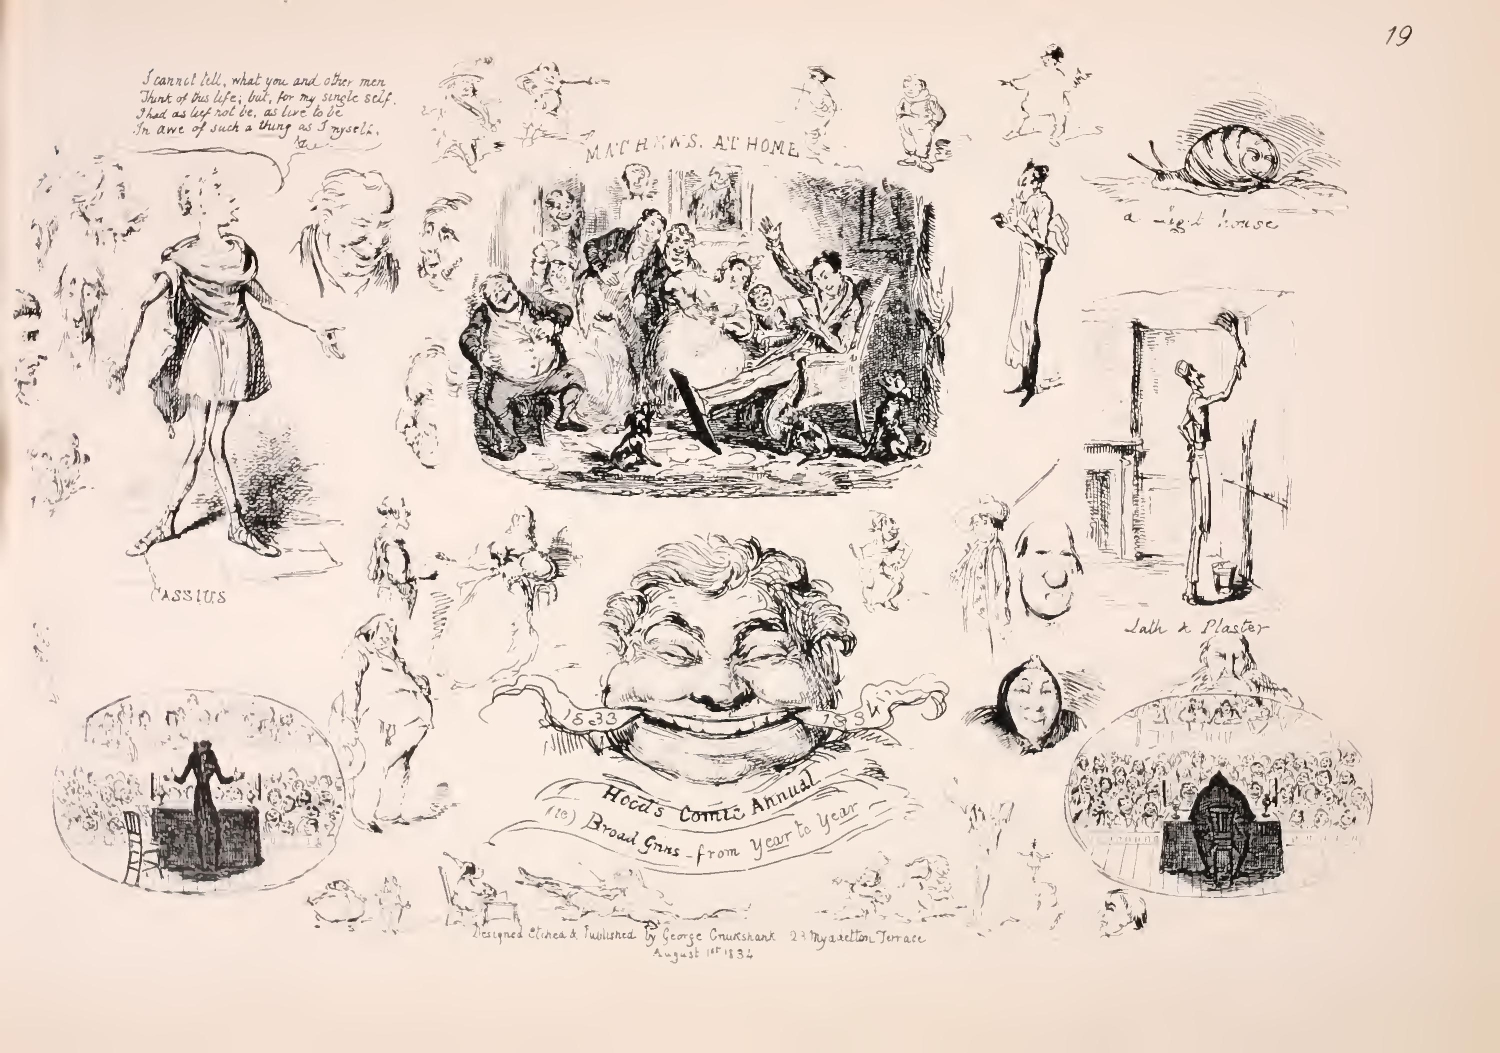 19
I cannot tell, what you and other men
Think of this life; but, for my single self,
I had as lief not be, as live to be
In awe of such a thing as I myself.
MATHEWS. AT HOME
a Light house
CASSIUS
Lath & Plaster
1833
1834
Hood's Comic Annual
Broad Grins - from Year to Year
Designed Etched & Published by George Cruikshank 23 Myddelton Terrace
August 1st 1834